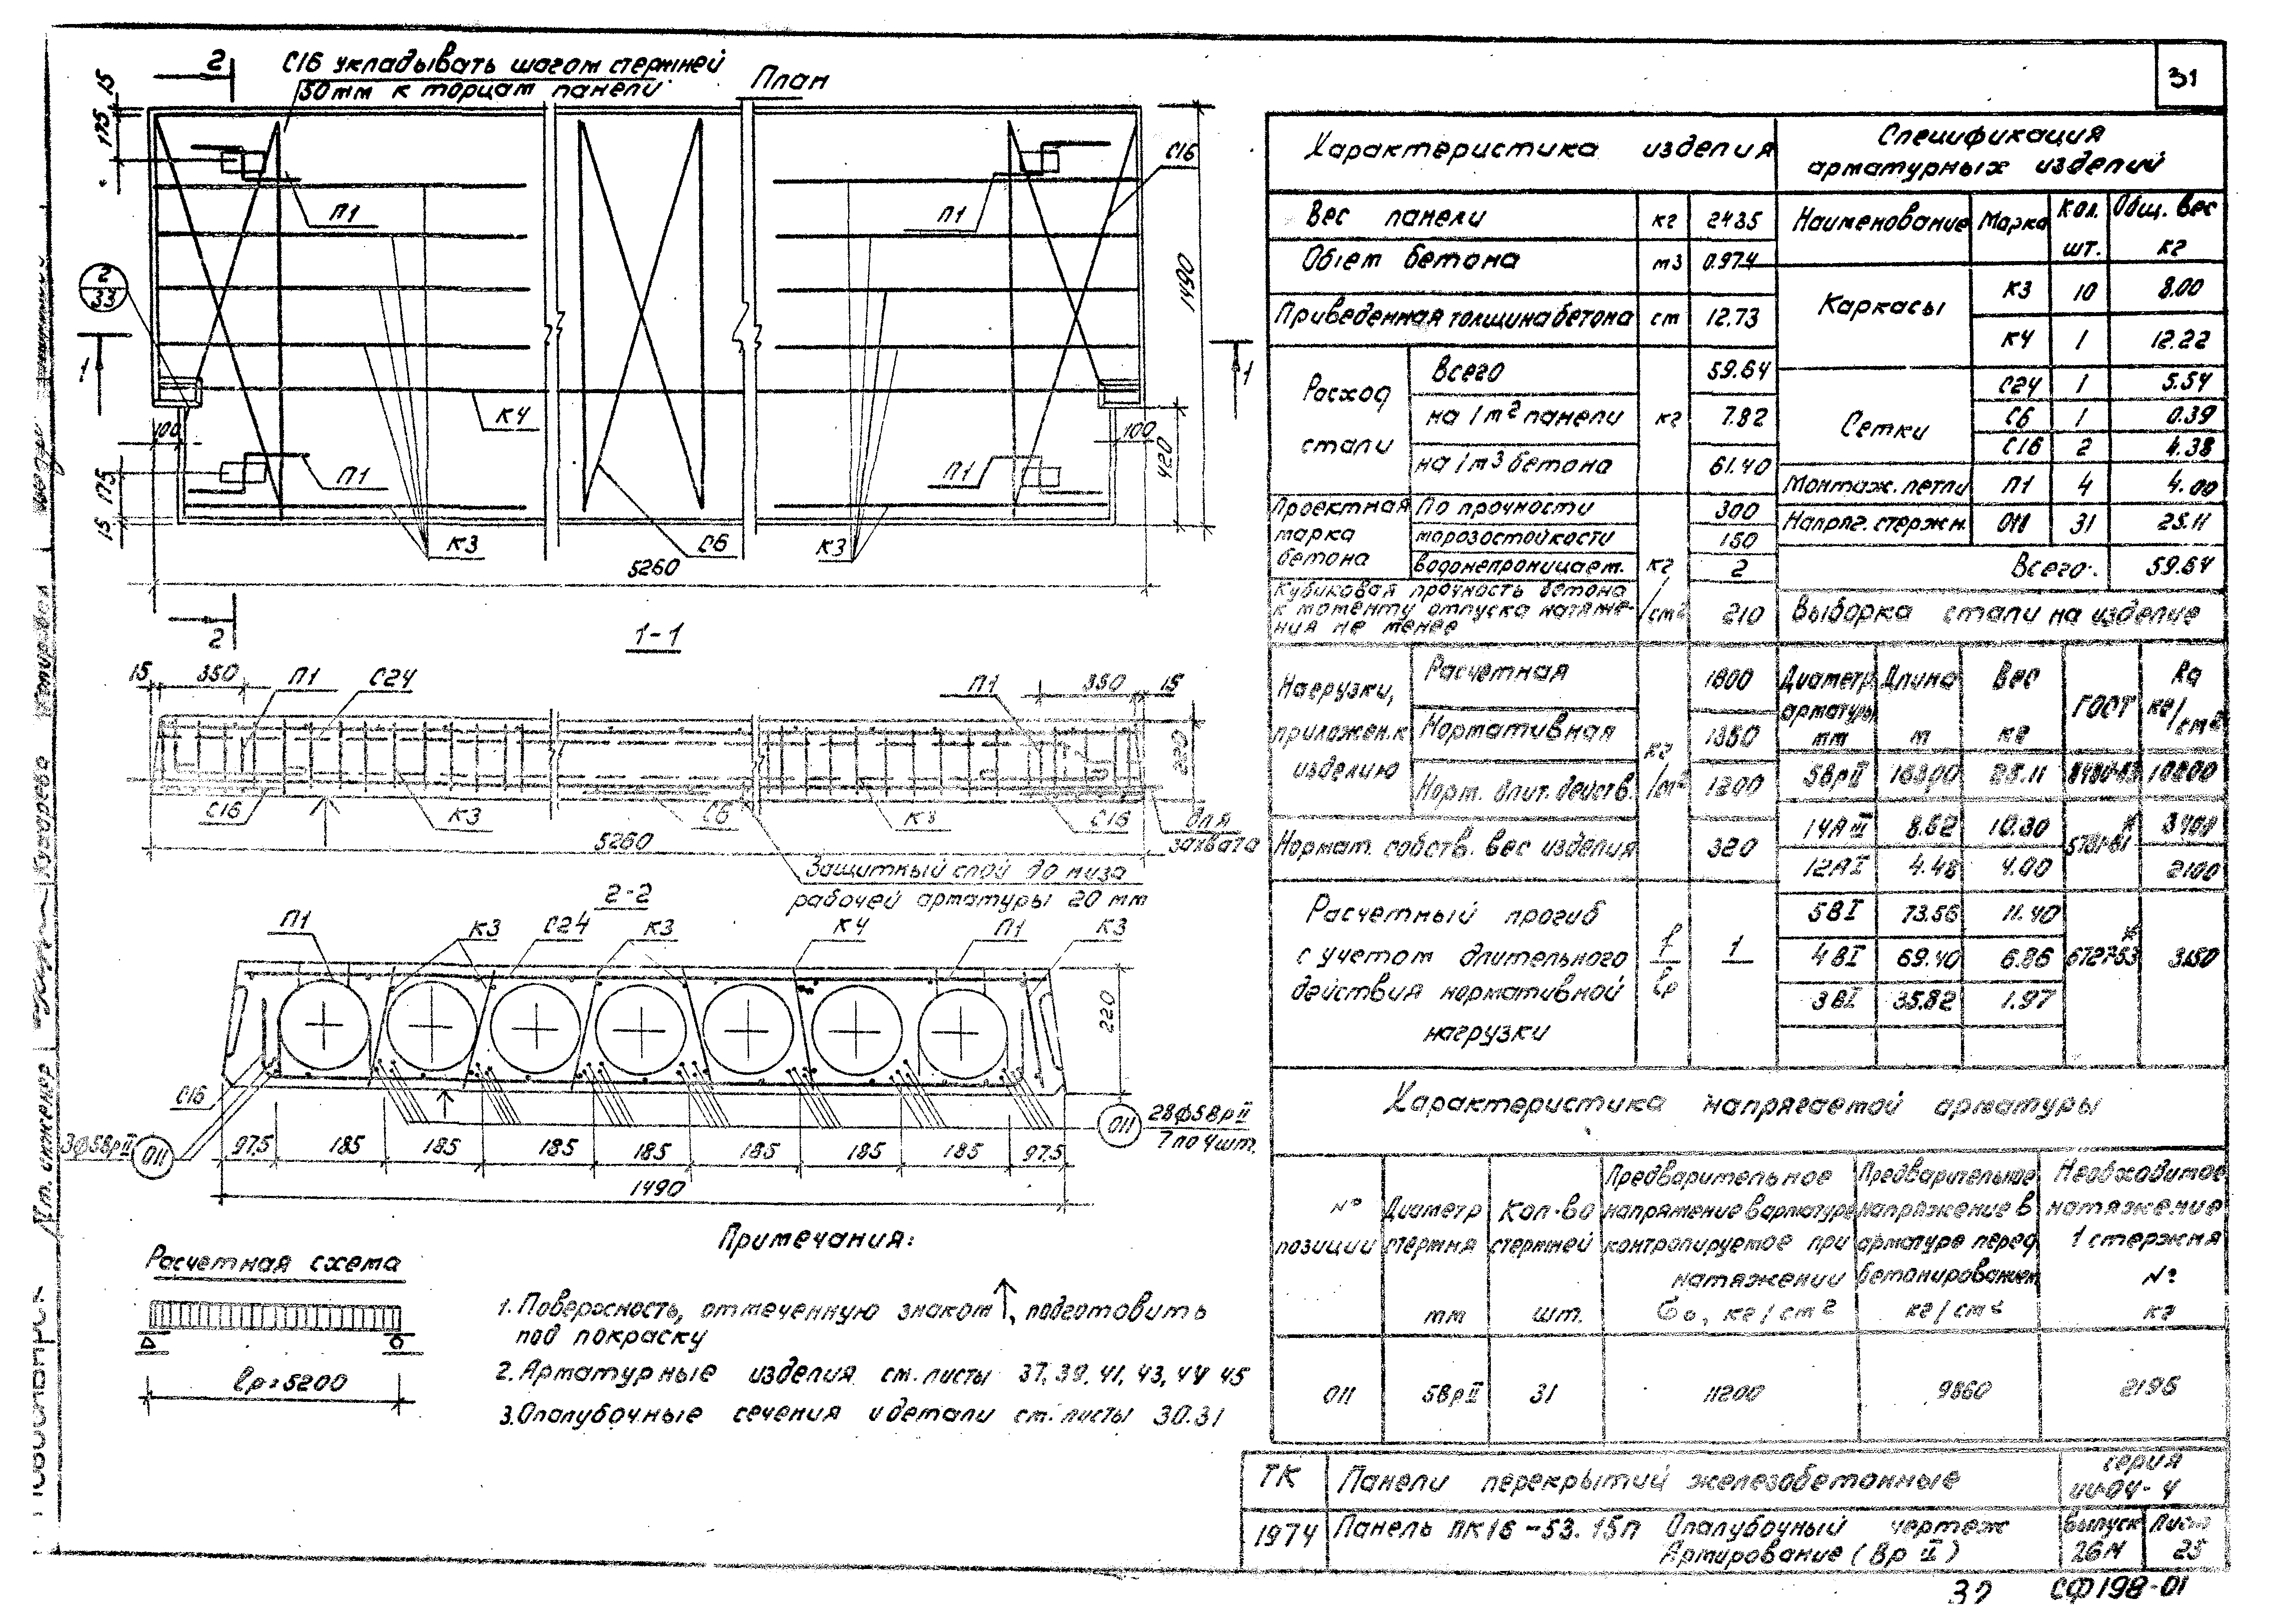 31
2
С16 укладывать шагом стержней
50мм к торцам панели
План
15
175
С16
П1
П1
2
33
1490
1
1
К4
100
100
420
П1
П1
175
15
К3
С6
К3
5260
2
1-1
15
350
П1
С24
П1
350
15
220
С16
К3
С6
К3
С16
для
захвата
5260
Защитный слой до низа
рабочей арматуры 20 мм
2-2
П1
К3
С24
К3
К4
П1
К3
220
С16
3ф5ВрII
011
011
28ф5ВрII
7 по 4шт.
97.5
185
185
185
185
185
185
185
97.5
1490
Расчетная схема
lр=5200
Примечания:
1. Поверхность, отмеченную знаком ↑, подготовить
под покраску
2. Арматурные изделия см. листы 37, 39, 41, 43, 44 45
3. Опалубочные сечения и детали см. листы 30.31
Характеристика изделия
Вес панели кг 2435
Объем бетона м3 0.974
Приведенная толщина бетона см 12.73
Расход стали кг
Всего 59.64
на 1м2 панели 7.82
на 1м3 бетона 61.40
Проектная марка бетона
По прочности 300
морозостойкости 150
водонепроницаем. 2
кг/см2
Кубиковая прочность бетона
к моменту отпуска натяже-
ния не менее 210
Нагрузки, приложен. к изделию
кг/м2
Расчетная 1800
Нормативная 1350
Норм. длит. действ. 1200
Нормат. собств. вес изделия 320
Расчетный прогиб
с учетом длительного
действия нормативной
нагрузки
f/lр
1
Спецификация
арматурных изделий
Наименование Марка Кол. шт. Общ. вес кг
Каркасы К3 10 8.00
К4 1 12.22
Сетки С24 1 5.54
С6 1 0.39
С16 2 4.38
Монтаж. петли П1 4 4.00
Напряг. стержн. 011 31 25.11
Всего: 59.64
Выборка стали на изделие
Диаметр арматуры мм Длина м Вес кг ГОСТ Ra кг/см2
5ВрII 163.00 25.11 8480-63 10800
14АIII 8.52 10.30 5781-61* 3400
12АI 4.48 4.00 2100
5ВI 73.56 11.40
4ВI 69.40 6.86 6727-53* 3150
3ВI 35.82 1.97
Характеристика напрягаемой арматуры
№ позиции
Диаметр стержня мм
Кол-во стержней шт.
Предварительное напряжение в арматуре контролируемое при натяжении σо, кг/см2
Предварительное напряжение в арматуре перед бетонированием кг/см2
Необходимое натяжение 1 стержня N° кг
011 5ВрII 31 11200 9860 2195
ТК Панели перекрытий железобетонные серия ИИ-04-4
1974 Панель ПК16-53.15П Опалубочный чертеж
Армирование (Вр II)
выпуск 26М
Лист 25
32 СФ198-01